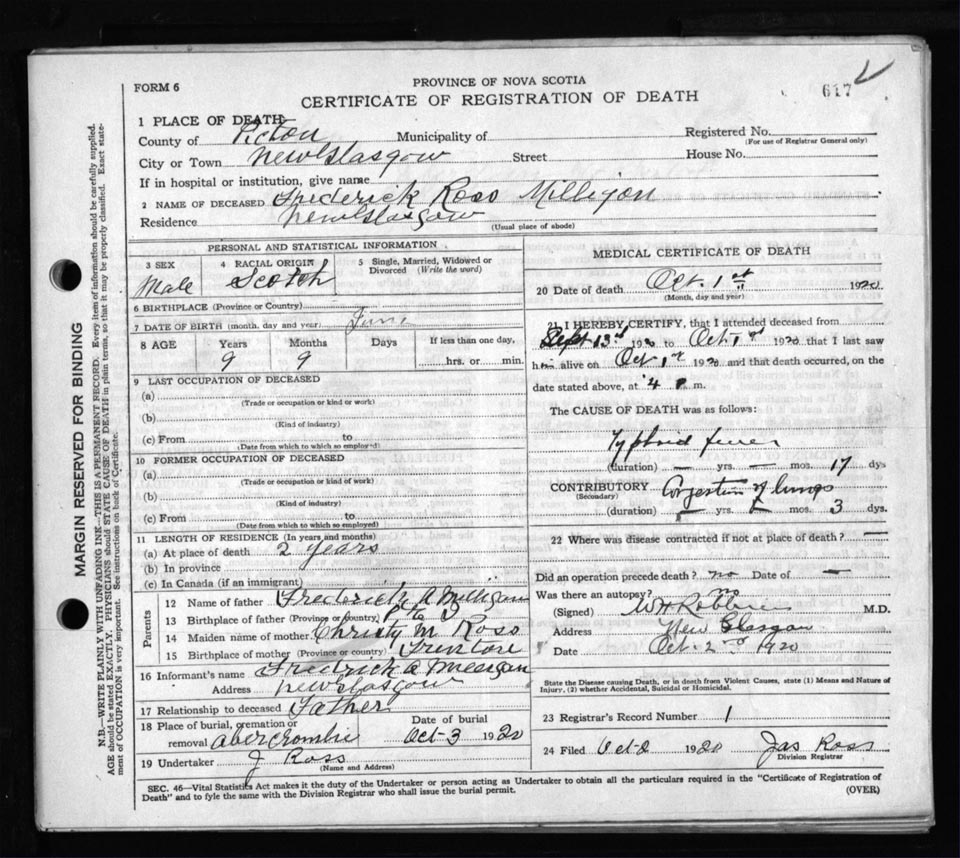 FORM 6
PROVINCE OF NOVA SCOTIA
CERTIFICATE OF REGISTRATION OF DEATH
617
1 PLACE OF DEATH
County of Pictou Municipality of Registered No.
(For use of Registrar General only)
City or Town New Glasgow Street House No.
If in hospital or institution, give name
2 NAME OF DECEASED Frederick Ross Milligan
Residence New Glasgow
(Usual place of abode)
PERSONAL AND STATISTICAL INFORMATION
3 SEX Male
4 RACIAL ORIGIN Scotch
5 Single, Married, Widowed or Divorced (Write the word)
6 BIRTHPLACE (Province or Country)
7 DATE OF BIRTH (month, day and year) June
8 AGE Years Months Days If less than one day,
9 9 hrs. or min.
9 LAST OCCUPATION OF DECEASED
(a)
(Trade or occupation or kind or work)
(b)
(Kind of industry)
(c) From to
(Date from which to which so employed)
10 FORMER OCCUPATION OF DECEASED
(a)
(Trade or occupation or kind of work)
(b)
(Kind of industry)
(c) From to
(Date from which to which so employed)
11 LENGTH OF RESIDENCE (In years and months)
(a) At place of death 2 years
(b) In province
(c) In Canada (if an immigrant)
Parents
12 Name of father Frederick A Milligan
13 Birthplace of father (Province or country)
14 Maiden name of mother Christy M Ross
15 Birthplace of mother (Province or country) Trenton
16 Informant's name Fredrick A Milligan
Address New Glasgow
17 Relationship to deceased Father
18 Place of burial, cremation or removal Abercrombie
Date of burial Oct 3 1920
19 Undertaker J Ross
(Name and Address)
MEDICAL CERTIFICATE OF DEATH
20 Date of death Oct. 1st 1920
(Month, day and year)
21 I HEREBY CERTIFY, that I attended deceased from
Sept 13th 1920 to Oct 1st 1920 that I last saw
him alive on Oct 1st 1920 and that death occurred, on the
date stated above, at 4 P m.
The CAUSE OF DEATH was as follows:
Typhoid fever
(duration) — yrs. — mos. 17 dys
CONTRIBUTORY Congestion of lungs
(Secondary)
(duration) — yrs. — mos. 3 dys.
22 Where was disease contracted if not at place of death? —
Did an operation precede death? no Date of —
Was there an autopsy? no
(Signed) W H M.D.
Address New Glasgow
Date Oct. 2nd 1920
State the Disease causing Death, or in death from Violent Causes, state (1) Means and Nature of
Injury, (2) whether Accidental, Suicidal or Homicidal.
23 Registrar's Record Number 1
24 Filed Oct 2 1920 Jas Ross
Division Registrar
SEC. 46—Vital Statistics Act makes it the duty of the Undertaker or person acting as Undertaker to obtain all the particulars required in the "Certificate of Registration of
Death" and to fyle the same with the Division Registrar who shall issue the burial permit.
(OVER)
MARGIN RESERVED FOR BINDING
N.B.—WRITE PLAINLY WITH UNFADING INK—THIS IS A PERMANENT RECORD. Every item of information should be carefully supplied.
AGE should be stated EXACTLY. PHYSICIANS should STATE CAUSE OF DEATH in plain terms, so that it may be properly classified. Exact state-
ment of OCCUPATION is very important. See instructions on back of Certificate.